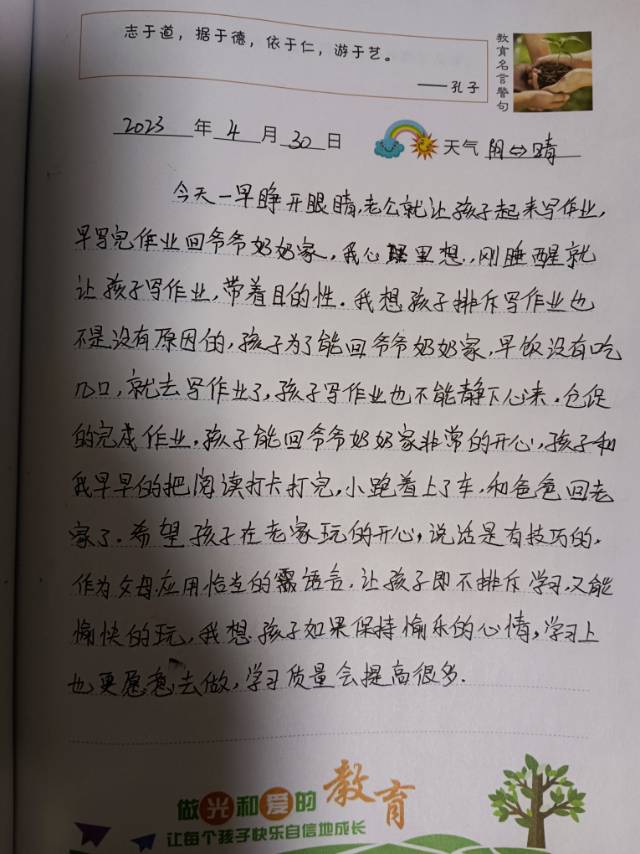 志于道，据于德，依于仁，游于艺。
——孔子
教育名言警句
2023年4月30日
天气 阴⇔晴
今天一早睁开眼睛,老公就让孩子起来写作业,
早写完作业回爷爷奶奶家,我心里想,刚睡醒就
让孩子写作业,带着目的性.我想孩子排斥写作业也
不是没有原因的,孩子为了能回爷爷奶奶家,早饭没有吃
几口,就去写作业了,孩子写作业也不能静下心来.仓促
的完成作业.孩子能回爷爷奶奶家非常的开心,孩子和
我早早的把阅读打卡打完,小跑着上了车,和爸爸回老
家了.希望孩子在老家玩的开心,说话是有技巧的.
作为父母应用恰当的语言.让孩子即不排斥学习,又能
愉快的玩,我想孩子如果保持愉乐的心情,学习上
也更愿意去做,学习质量会提高很多.
做光和爱的教育
让每个孩子快乐自信地成长